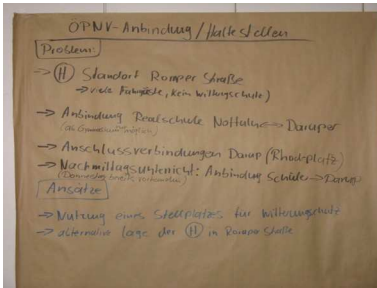 ÖPNV-Anbindung / Haltestellen
Problem:
→ (H) Standort Romper Straße
→ viele Fahrgäste, kein Witterungsschutz)
→ Anbindung Realschule Nottuln → Darup
→ Anschlussverbindungen Darup (Rhodeplatz)
→ Nachmittagsunterricht: Anbindung Schule → Darup
(Donnerstag bereits vorhanden)
Ansätze
→ Nutzung eines Stellplatzes für Witterungsschutz
→ alternative Lage der (H) in Romper Straße